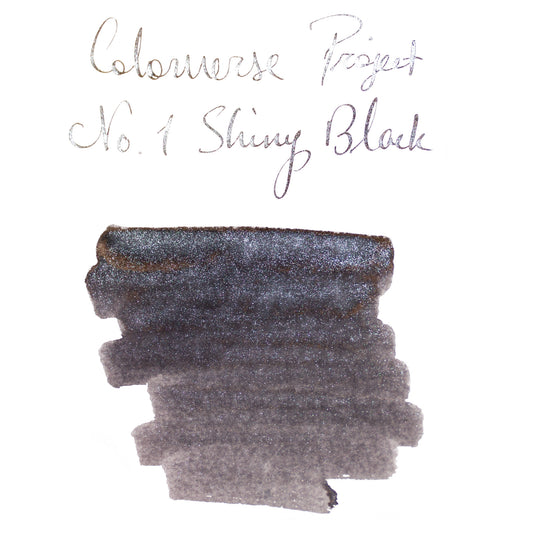 Colorverse Project
No. 1 Shiny Black